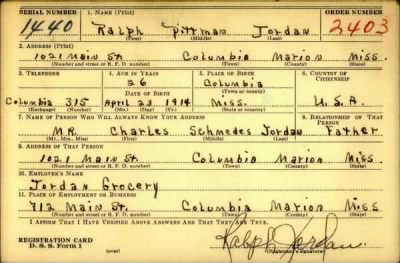 SERIAL NUMBER 1. NAME (Print) ORDER NUMBER
1440 Ralph Pittman Jordan 2403
(First) (Middle) (Last)
2. ADDRESS (Print)
1021 Main St. Columbia Marion Miss.
(Number and street or R. F. D. number) (Town) (County) (State)
3. TELEPHONE 4. AGE IN YEARS 5. PLACE OF BIRTH 6. COUNTRY OF CITIZENSHIP
26 Columbia
DATE OF BIRTH (Town or county)
Columbia 315 April 23 1914 Miss. U.S.A.
(Exchange) (Number) (Mo.) (Day) (Yr.) (State or country)
7. NAME OF PERSON WHO WILL ALWAYS KNOW YOUR ADDRESS 8. RELATIONSHIP OF THAT PERSON
MR. Charles Schmedes Jordan Father
(Mr., Mrs., Miss) (First) (Middle) (Last)
9. ADDRESS OF THAT PERSON
1021 Main St. Columbia Marion Miss.
(Number and street or R. F. D. number) (Town) (County) (State)
10. EMPLOYER'S NAME
Jordan Grocery
11. PLACE OF EMPLOYMENT OR BUSINESS
712 Main St. Columbia Marion Miss
(Number and street or R. F. D. number) (Town) (County) (State)
I AFFIRM THAT I HAVE VERIFIED ABOVE ANSWERS AND THAT THEY ARE TRUE.
REGISTRATION CARD
D. S. S. Form 1 Ralph Jordan
(Registrant's signature)